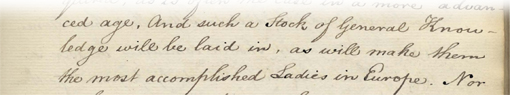 in a more advan
ced age, And such a Stock of General Know-
ledge will be laid in, as will make them
the most accomplished Ladies in Europe. Nor